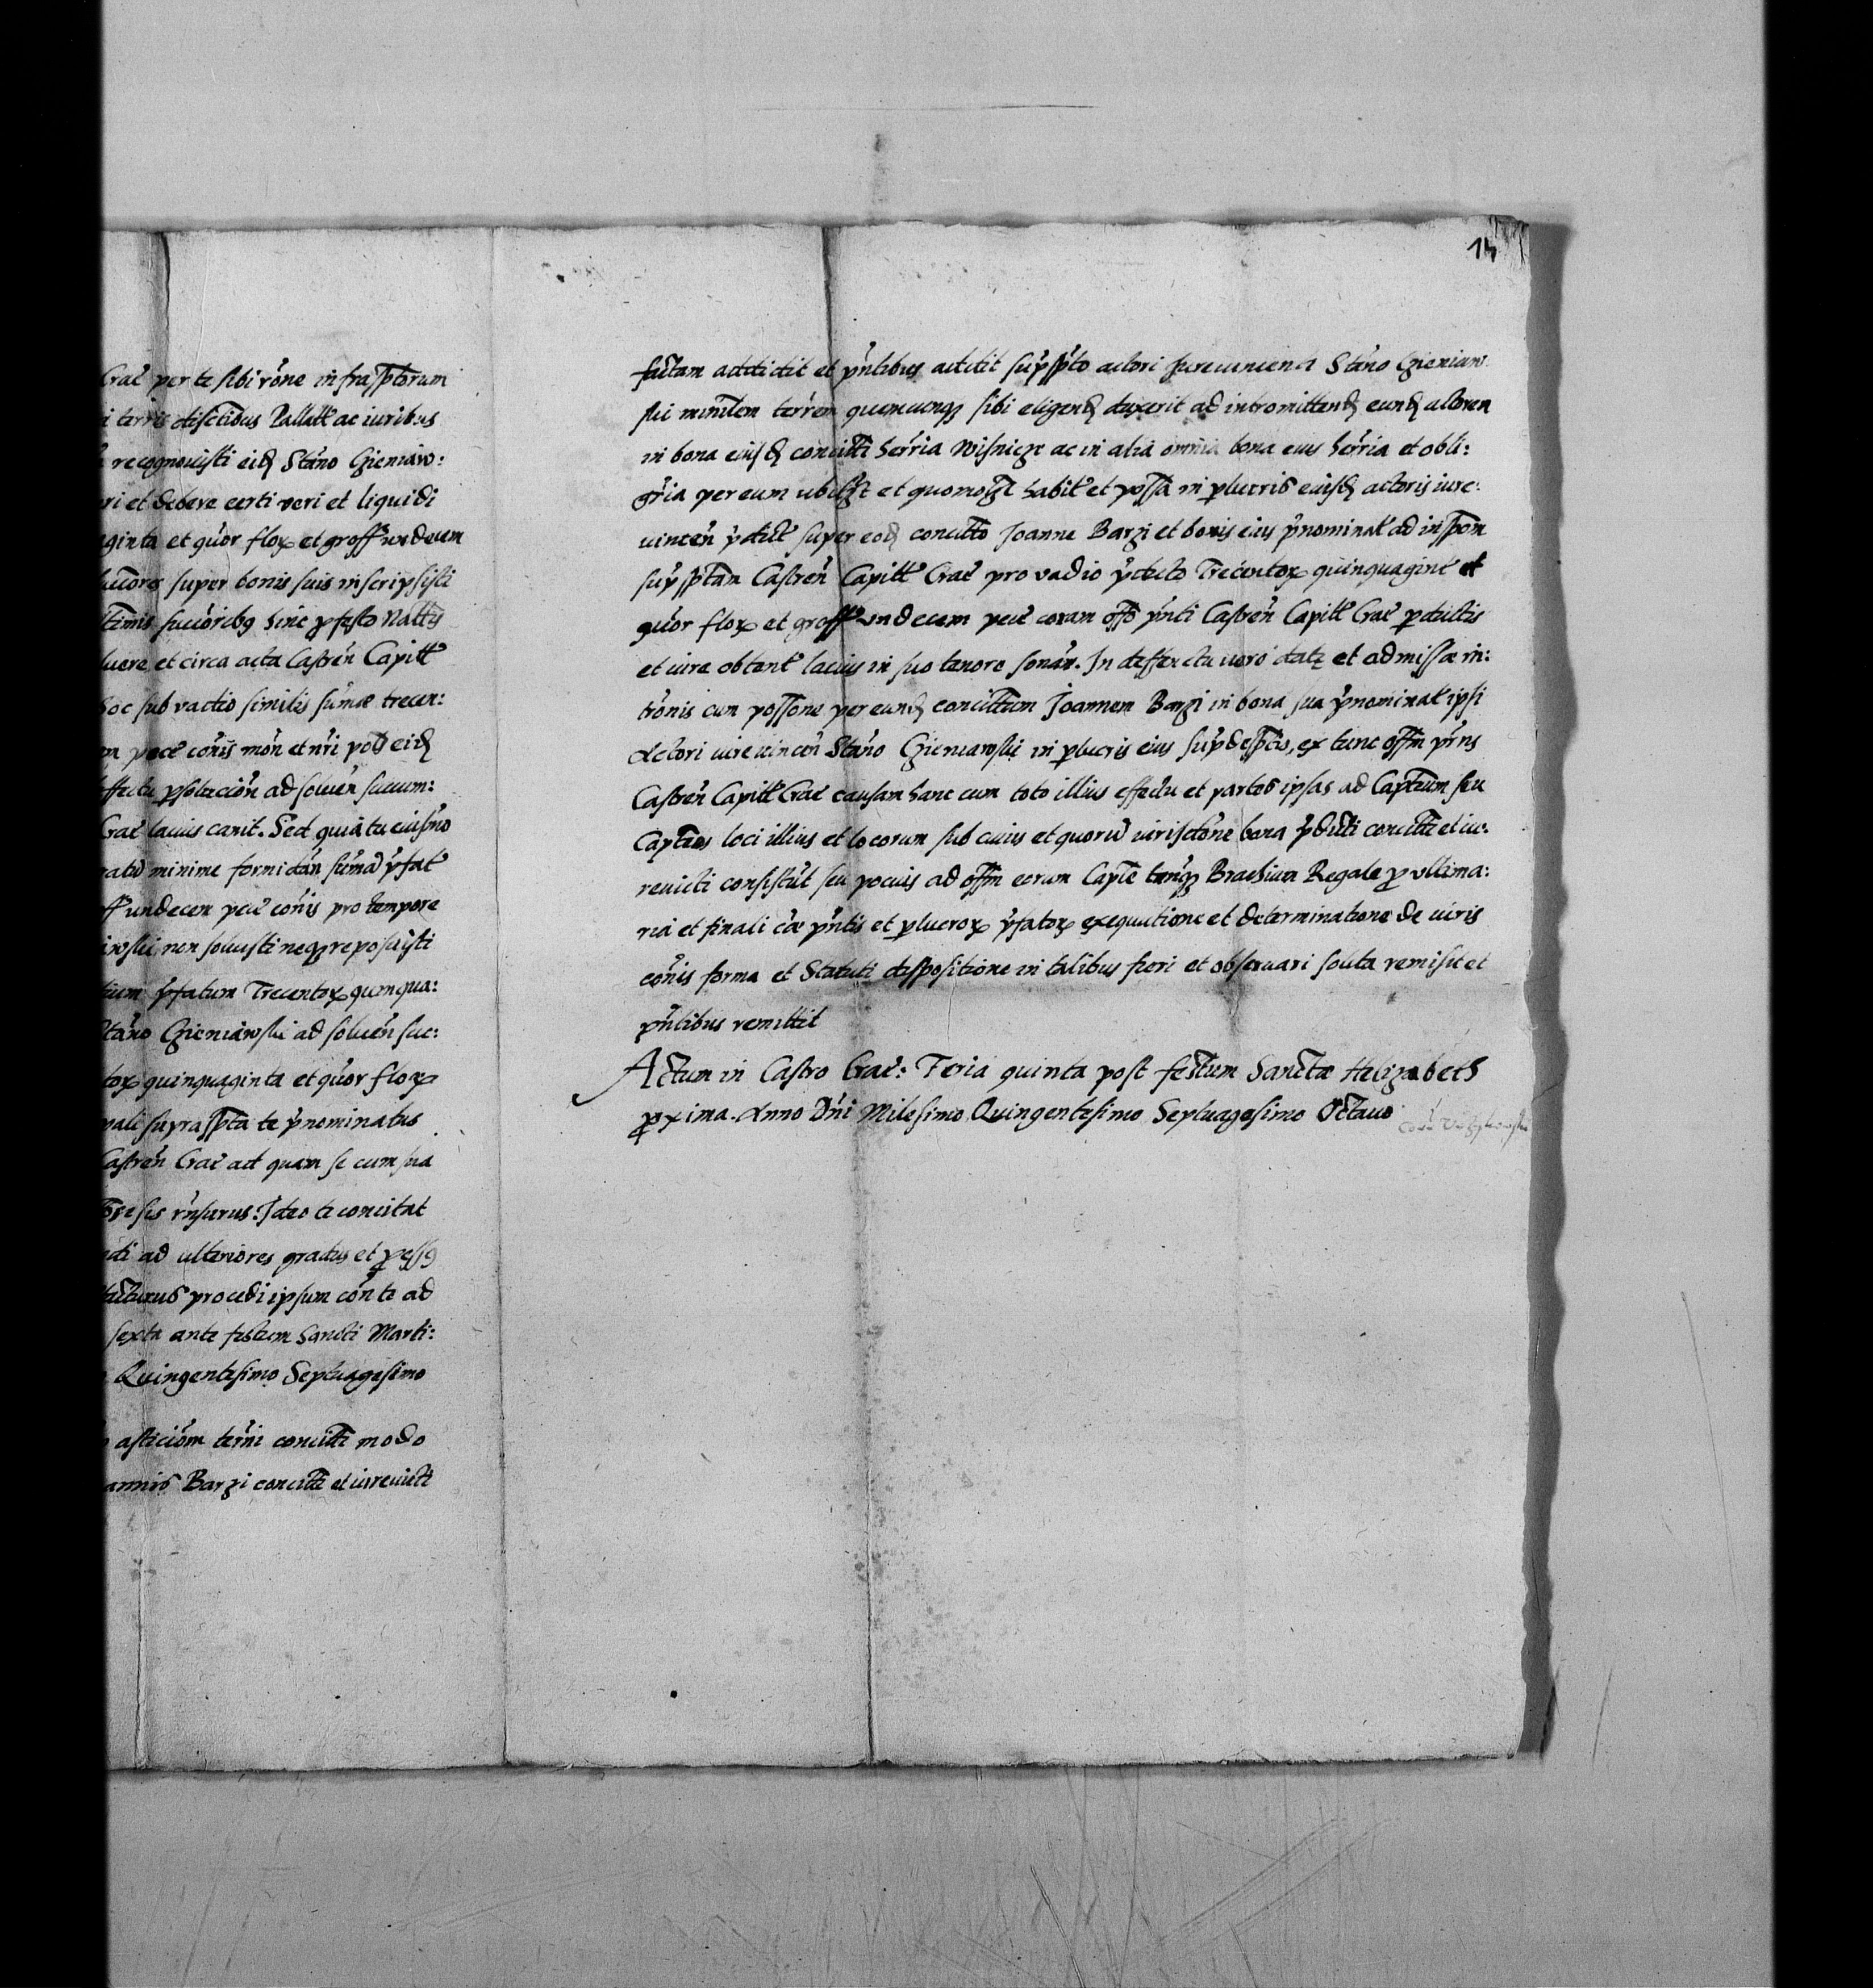 14
Crac̃ per te sibi rõne infrasptorum
terris distctibus Pallatt ac iuribus
recognouisti eid Stano Gieniaw:
ri et debere certi veri et liquidi
ginta et quor flox et gross undecem
super bonis suis inscripsisti
timis succoribq hinc p festo Nattis
luere et circa acta Castren Capitt
hoc sub vadio similis sumæ trecen:
pecc conis mon et nri pols eid
effectu psolucion ad soluen succum:
Crac lacius canit. Sed quia tu eiusmo
minime formidan suma pfat
undecem pecc conis pro tempore
non soluisti neqz reposuisti
pfatum Trecentox quinqua:
Stano Gieniawski ad soluen suc:
tox quinquaginta et quor flox
suprasspta te pnominatus
Castren Crac ad quam se cum sua
sis rnsurus. Ideo te concitat
ad ulteriores gradus et pcessq
procedi ipsum con te ad
sexta ante festum Sancti Marti:
Quingentesimo Septuagesimo
asticiom terni concitti modo
annis Barzi concitti et iurevicti
factam addidit et pntibus addit supspto actori iureuincend Stano Gieniaw
ski minilem terrem quemcunqz sibi eligend duxerit ad intromittend eund actorem
in bona eiusd concitti herria Wisnicze ac in alia omnia bona eius herria et obli:
gria per eum ubilzt et quomozt habit et possa in plucris eiusd actoris iure:
uincen pdict super eod concitto Joanne Barzi et bonis eius pnominat ad inspom
supsptam Castren Capitt Crac pro vadio pdicto Trecentox quinquagint et
quor flox et gross undecem pecc coram offo pnti Castren Capitt Crac pductis
et iure obtent lacius in suo tenore sonan. In deffectu uero datæ et admissæ in:
tronis cum possone per eund concittum Joannem Barzi in bona sua pnominat ipsi
Actori iure uincen Stano Gieniawski in plucris eius supdesptis, ex tunc offm pnns
Castren Capitt Crac causam hanc cum toto illius effectu et partes ipsas ad Captum seu
Captos loci illius et locorum sub cuius et quoru iurisdone bona pducti concitti et iu:
reuicti consistut seu pocuis ad offm eorum Capte tanqz Brachium Regale p ultima:
ria et finali cæ pntis et plucrox pfatox exequutione et determinatione de iuris
conis forma et Statuti dispositione in talibus fieri et obseruari solita remisit et
pntibus remittit
Actum in Castro Crac: Feria quinta post festum Sanctæ Helizabeth
proxima. Anno Dni Milesimo Quingentesimo Septuagesimo Octauo